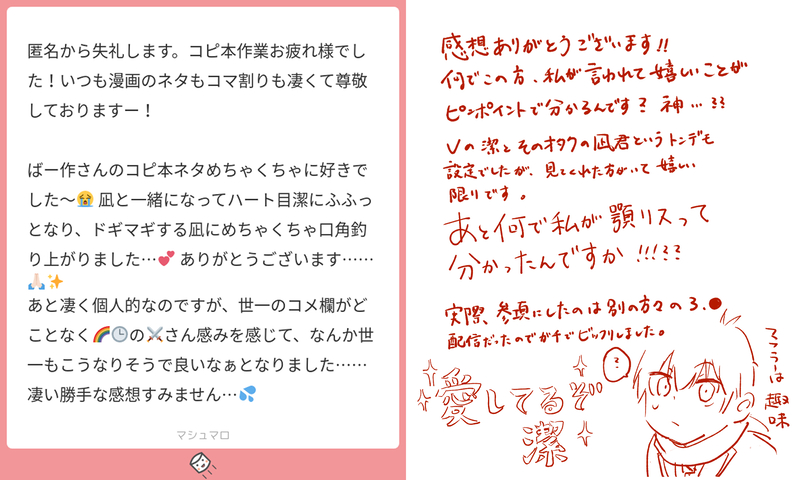 匿名から失礼します。コピ本作業お疲れ様でし
た！いつも漫画のネタもコマ割りも凄くて尊敬
しておりますー！
ばー作さんのコピ本ネタめちゃくちゃに好きで
した〜😭 凪と一緒になってハート目潔にふふっ
となり、ドギマギする凪にめちゃくちゃ口角釣
り上がりました…💕 ありがとうございます……
🙏🏻✨
あと凄く個人的なのですが、世一のコメ欄がど
ことなく🌈🕒の⚔️さん感みを感じて、なんか世
一もこうなりそうで良いなぁとなりました……
凄い勝手な感想すみません…💦
マシュマロ
感想ありがとうございます!!
何でこの方、私が言われて嬉しいことが
ピンポイントで分かるんです？神…??
Vの潔とそのオタクの凪君というトンデモ
設定でしたが、見てくれた方がいて嬉しい
限りです。
あと何で私が顎リスって
分かったんですか!!!??
実際、参考にしたのは別の方々の3.●
配信だったのでガチでビックリしました。
?
愛してるぞ
潔
は趣味